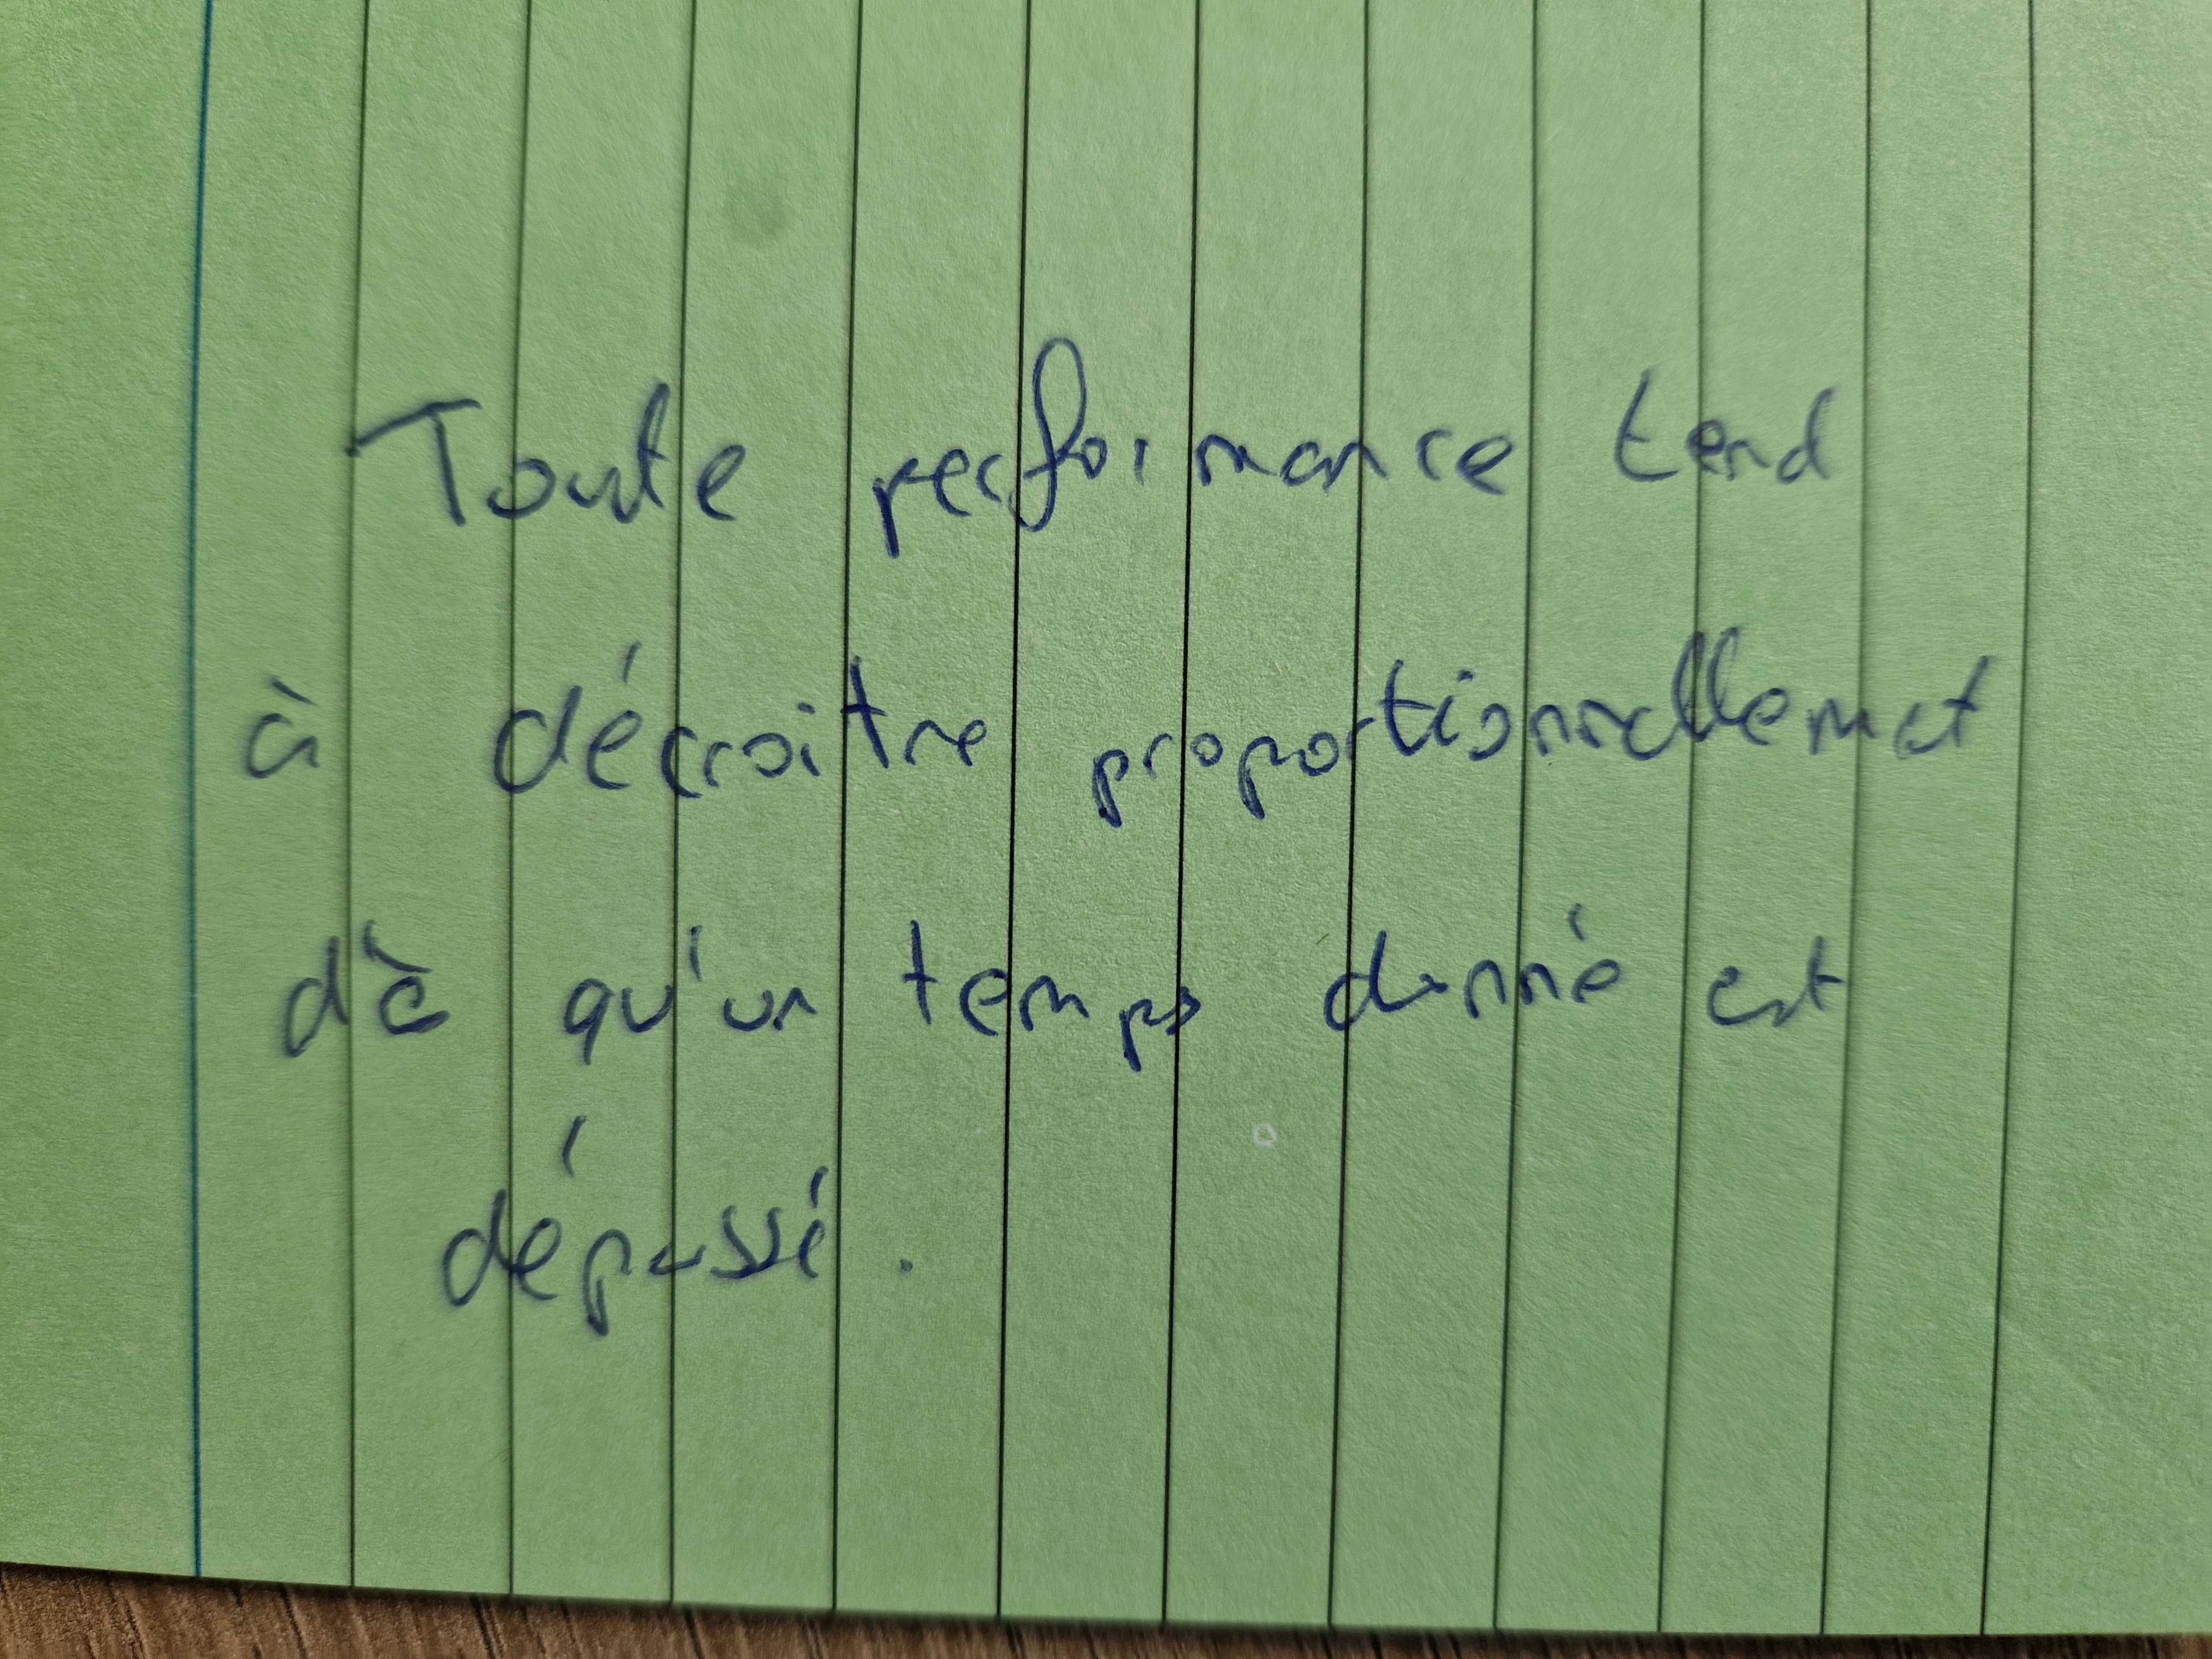 Toute performance tend
à décroitre proportionnellemet
dè qu'un temps donné est
dépassé.